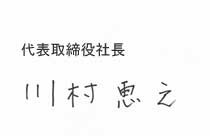 代表取締役社長
川村恵之